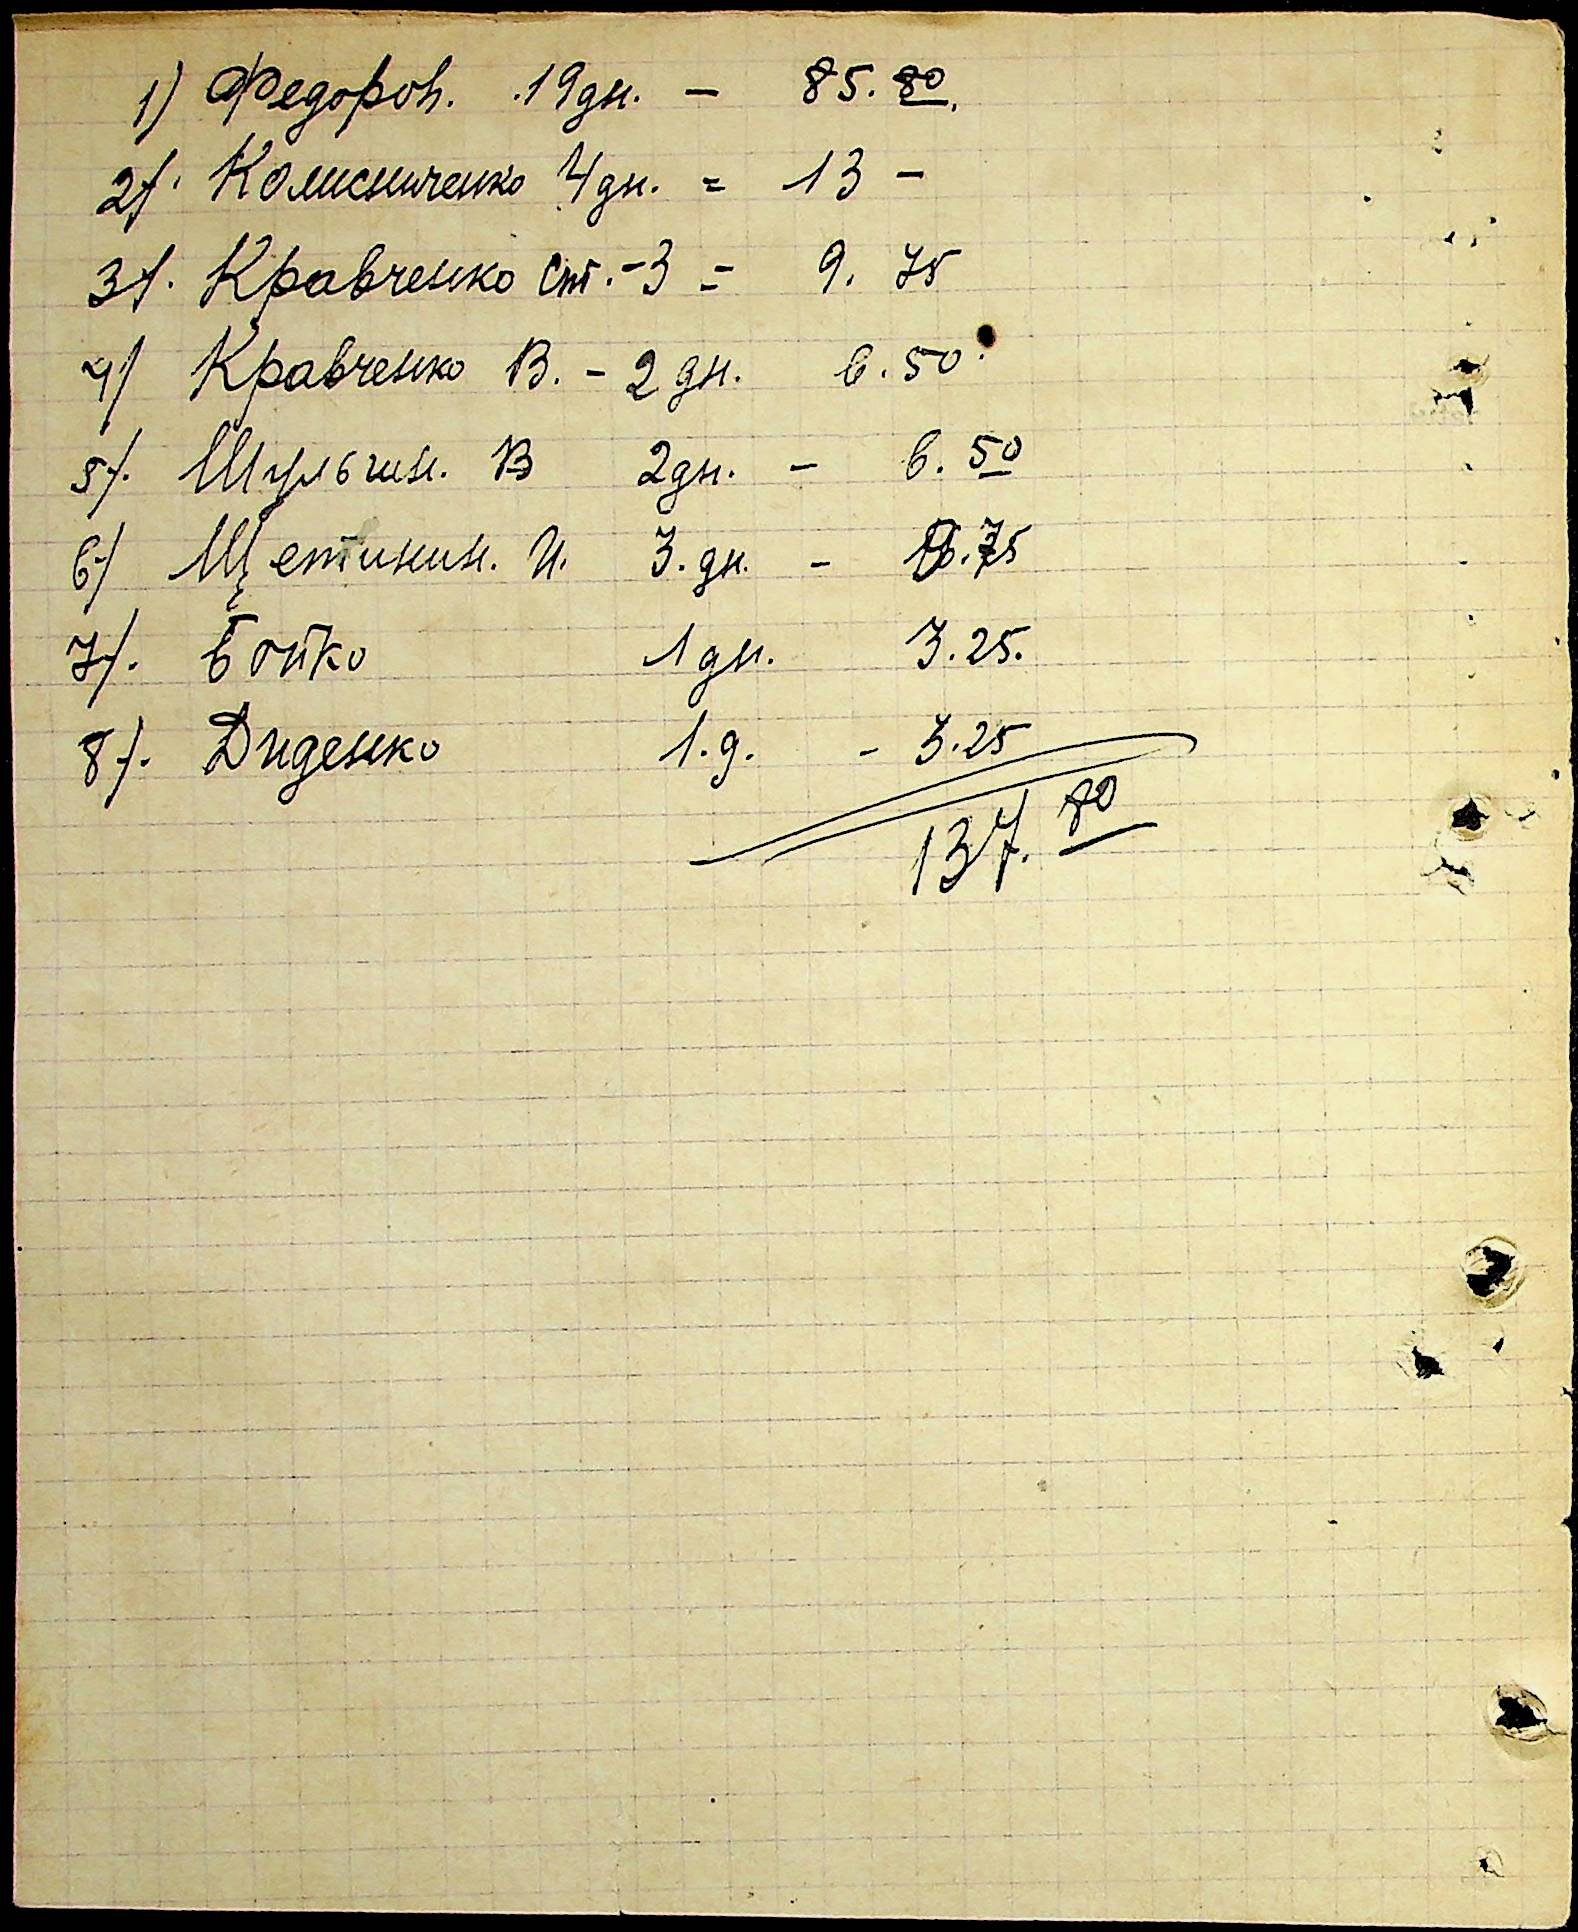 1) Федоров. 19дн. - 85.80.
2). Колисниченко 4дн. = 13 -
3). Кравченко ст. - 3 = 9. 75
4) Кравченко В. - 2 дн. 6.50
5). Шульгин. В 2дн. - 6.50
6) Щетинин. И. 3.дн. - 9.75
7). Бойко 1дн. 3.25.
8). Диденко 1.д. - 3.25
137.80